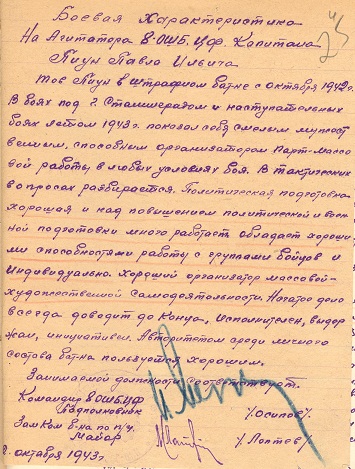 Боевая характеристика
На Агитатора 8-ОШБ ЦФ. Капитана
Пиун Павла Ильича
Тов Пиун в штрафном бат-не с октября 1942г
В боях под г. Сталинградом и наступательных
боях летом 1943г. показал себя смелым мужест
венным, способным организатором Парт-массо
вой работы в любых условиях боя. В тактических
вопросах разбирается. Политическая подготовка
хорошая и над повышением политической и воен
ной подготовки много работает, обладает хороши
ми способностями работы с группами бойцов и
Индивидуально. Хороший организатор массовой-
художественной самодеятельности. Начатое дело
всегда доводит до конца, исполнителен, выдер
жан, инициативен. Авторитетом среди личного
состава бат-на пользуется хорошим.
Занимаемой должности соответствует.
Командир 8 ОШБ ЦФ
Подполковник /Осипов/
Зам Ком б-на по п/ч.
Майор /Лаптев/
октября 1943г